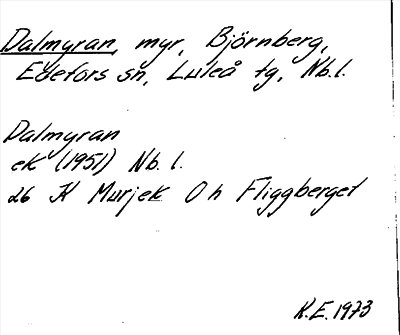 Dalmyran, myr, Björnberg,
Edefors sn, Luleå tg, Nb.l.
Dalmyran
ek (1951) Nb. l.
26 K Murjek O h Fliggberget
K.E. 1973